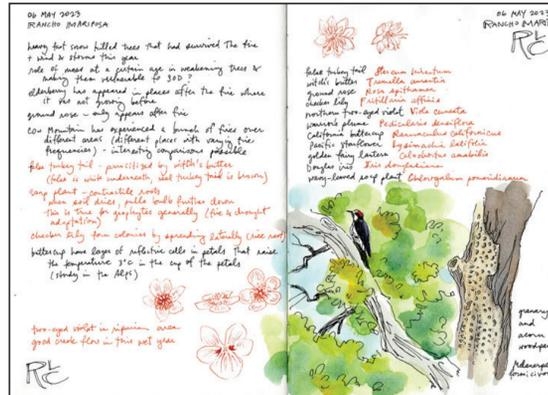 06 MAY 2023
RANCHO MARIPOSA
heavy fast snow killed trees that had survived the fire
+ wind & storms this year
role of moss at a certain age in weakening trees &
making them vulnerable to SOD?
elderberry has appeared in places after the fire where
it was not growing before
ground rose - only appears after fire
Cow Mountain has experienced a bunch of fires over
different areas (different places with varying fire
frequencies) - interesting comparisons possible
false turkey tail - parasitized by witch's butter
(false is white underneath, real turkey tail is brown)
soap plant - contractile roots
when soil dries, pulls bulb further down
This is true for geophytes generally (fire & drought
adaptation)
checker lily form colonies by spreading laterally (rice root)
buttercup have layer of reflective cells in petals that raise
the temperature 3°C in the cup of the petals
(study in the Alps)
two-eyed violet in riparian area
good creek flow in this wet year
RLC
06 MAY 2023
RANCHO MARI
RLC
false turkey tail Stereum hirsutum
witch's butter Tremella aurantia
ground rose Rosa spithamea
checker lily Fritillaria affinis
northern two-eyed violet Viola cuneata
warrior's plume Pedicularis densiflora
California buttercup Ranunculus californicus
Pacific starflower Lysimachia latifolia
golden fairy lantern Calochortus amabilis
Douglas iris Iris douglasiana
wavy-leaved soap plant Chlorogalum pomeridianum
granary
and
acorn
woodpec
Melanerpes
formicivor